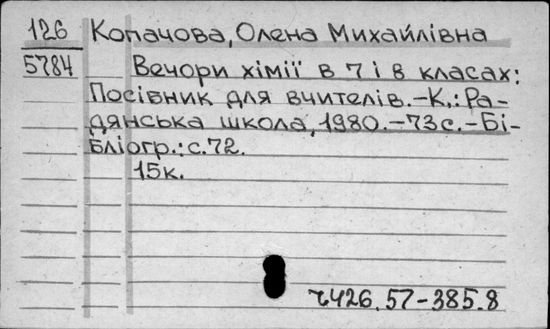 126 Копачова, Олена Михайлівна
5784 Вечори хімії в 7 і 8 класах:
Посібник для вчителів.-К.: Ра-
дянська школа, 1980.-73с.-Бі-
бліогр.: с.72.
15к.
ч426.57-385.8